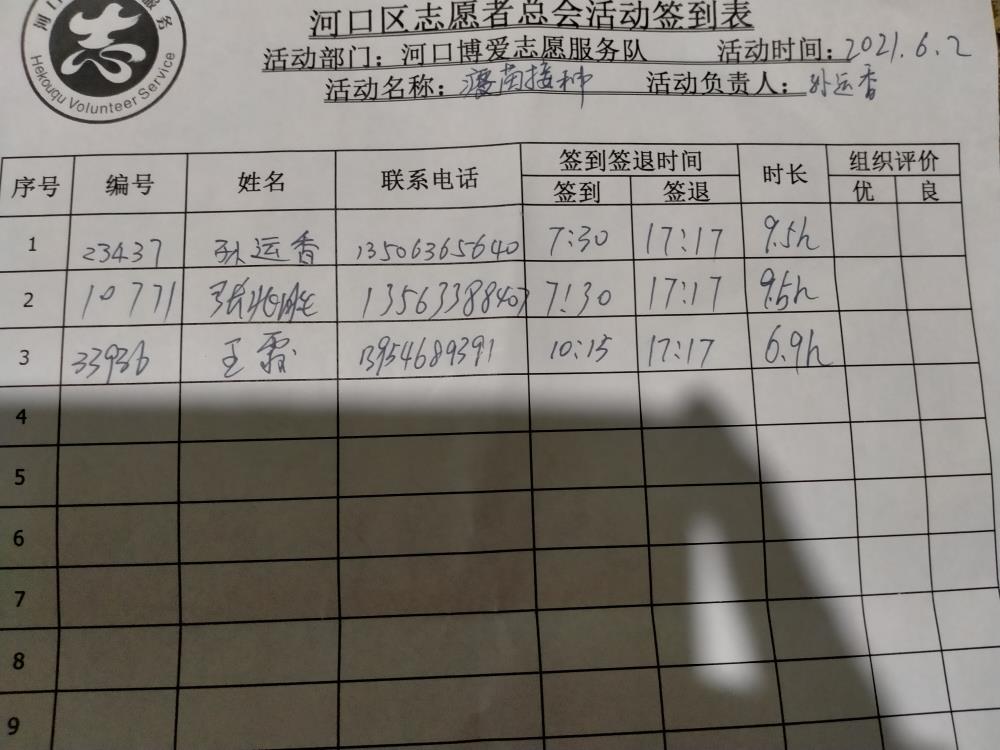 河口区志愿者总会活动签到表
活动部门：河口博爱志愿服务队 活动时间：2021.6.2
活动名称：疫苗接种 活动负责人：孙运香
Hekouqu Volunteer Service
序号 编号 姓名 联系电话 签到签退时间 时长 组织评价
签到 签退 优 良
1 23437 孙运香 13506365640 7:30 17:17 9.5h
2 10771 张兆胜 13563388407 7:30 17:17 9.5h
3 33936 王霜 13954689391 10:15 17:17 6.9h
4
5
6
7
8
9